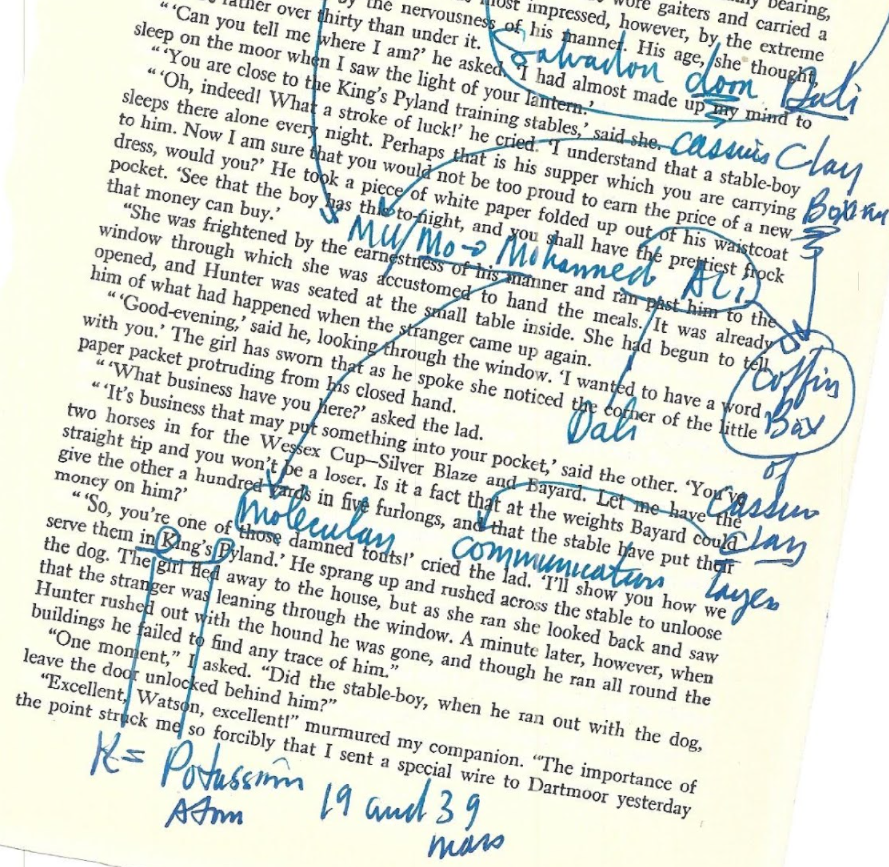 bearing,
wore gaiters and carried a
most impressed, however, by the extreme
by the nervousness of his manner. His age, she thought,
rather over thirty than under it.
Salvadon doom Dali
“‘Can you tell me where I am?’ he asked. ‘I had almost made up my mind to
sleep on the moor when I saw the light of your lantern.’
“‘You are close to the King's Pyland training stables,’ said she.
cassius Clay
“‘Oh, indeed! What a stroke of luck!’ he cried. ‘I understand that a stable-boy
sleeps there alone every night. Perhaps that is his supper which you are carrying
to him. Now I am sure that you would not be too proud to earn the price of a new
dress, would you?’ He took a piece of white paper folded up out of his waistcoat
pocket. ‘See that the boy has this to-night, and you shall have the prettiest frock
that money can buy.’
Mu/Mo → Mohammed Ali
“She was frightened by the earnestness of his manner and ran past him to the
window through which she was accustomed to hand the meals. It was already
opened, and Hunter was seated at the small table inside. She had begun to tell
him of what had happened when the stranger came up again.
“‘Good-evening,’ said he, looking through the window. ‘I wanted to have a word
with you.’ The girl has sworn that as he spoke she noticed the corner of the little
paper packet protruding from his closed hand.
Dali
Coffin
Box
of
Cassius
Clay
Layer
“‘What business have you here?’ asked the lad.
“‘It's business that may put something into your pocket,’ said the other. ‘You've
two horses in for the Wessex Cup—Silver Blaze and Bayard. Let me have the
straight tip and you won't be a loser. Is it a fact that at the weights Bayard could
give the other a hundred yards in five furlongs, and that the stable have put their
money on him?’
molecular
communication
“‘So, you're one of those damned touts!’ cried the lad. ‘I'll show you how we
serve them in King's Pyland.’ He sprang up and rushed across the stable to unloose
the dog. The girl fled away to the house, but as she ran she looked back and saw
that the stranger was leaning through the window. A minute later, however, when
Hunter rushed out with the hound he was gone, and though he ran all round the
buildings he failed to find any trace of him.”
“One moment,” I asked. “Did the stable-boy, when he ran out with the dog,
leave the door unlocked behind him?”
“Excellent, Watson, excellent!” murmured my companion. “The importance of
the point struck me so forcibly that I sent a special wire to Dartmoor yesterday
K= Potassium
Atom
19 and 39
mass